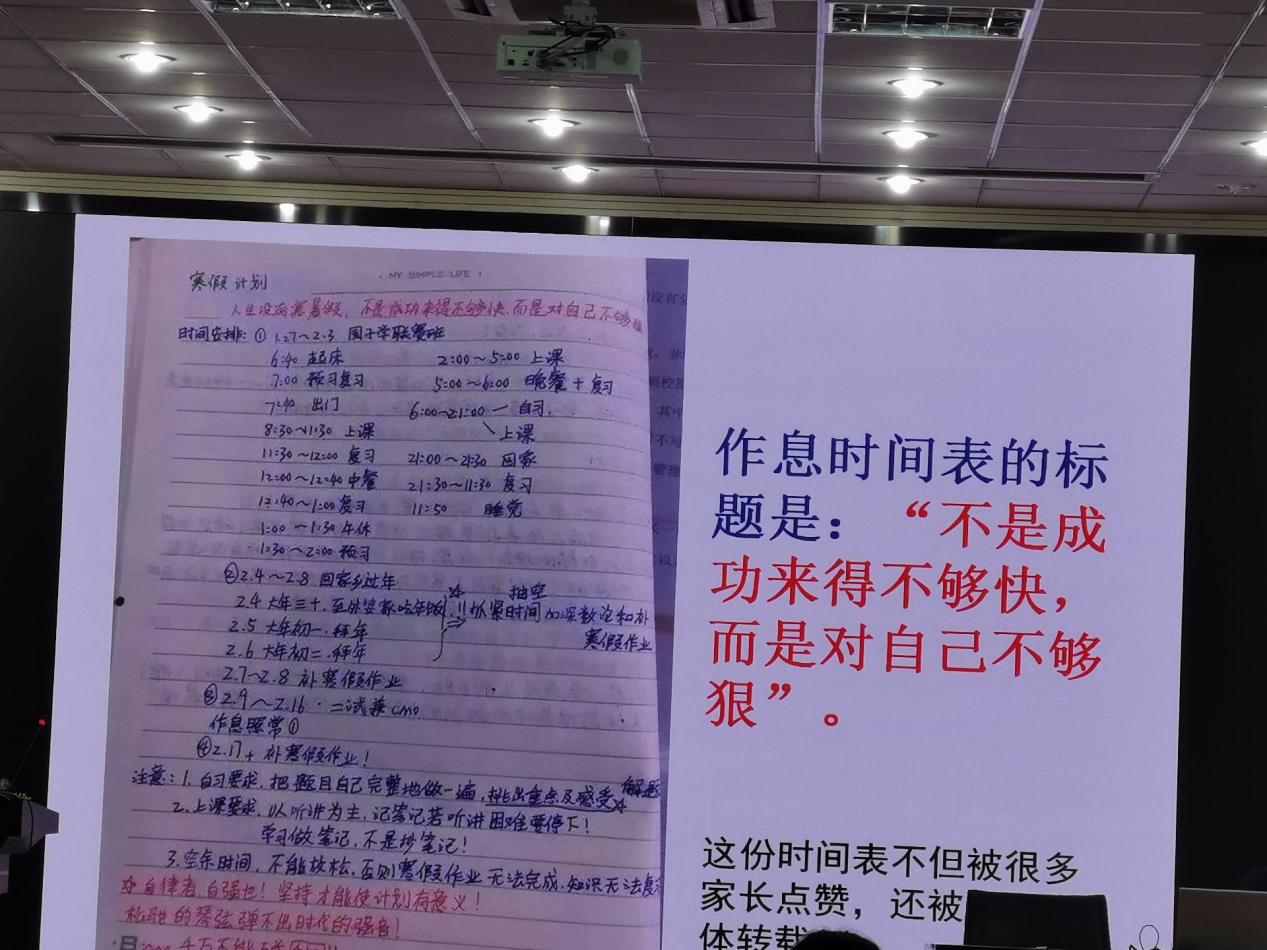 寒假计划
· MY SIMPLE LIFE ·
人生没有寒暑假，不是成功来得不够快，而是对自己不够狠
时间安排：① 1.27～2.3 国子学联赛班
6:40 起床 2:00～5:00 上课
7:00 预习复习 5:00～6:00 晚餐＋复习
7:40 出门 6:00～21:00 自习.
8:30～11:30 上课 上课
11:30～12:00 复习 21:00～21:30 回家
12:00～12:40 中餐 21:30～11:30 复习
12:40～1:00 复习 11:50 睡觉
1:00～1:30 午休
1:30～2:00 预习
②2.4～2.8 回家乡过年
2.4 大年三十，至外婆家吃年饭 抽空
2.5 大年初一，拜年 !!抓紧时间加深数论和补
2.6 大年初二，拜年 寒假作业
2.7～2.8 补寒假作业
③2.9～2.16 · 二试兼cmo
作息照常①
④2.17+ 补寒假作业！
注意：1. 自习要求，把题目自己完整地做一遍，挑出重点及感受 解题
2. 上课要求，以听讲为主，记笔记若听讲困难要停下！
学习做笔记，不是抄笔记！
3. 空余时间，不能放松，否则寒假作业无法完成，知识无法复
自律者，自强也！坚持才能使计划有意义！
松弛的琴弦弹不出时代的强音！
作息时间表的标
题是：“不是成
功来得不够快，
而是对自己不够
狠”。
这份时间表不但被很多
家长点赞，还被
体转载